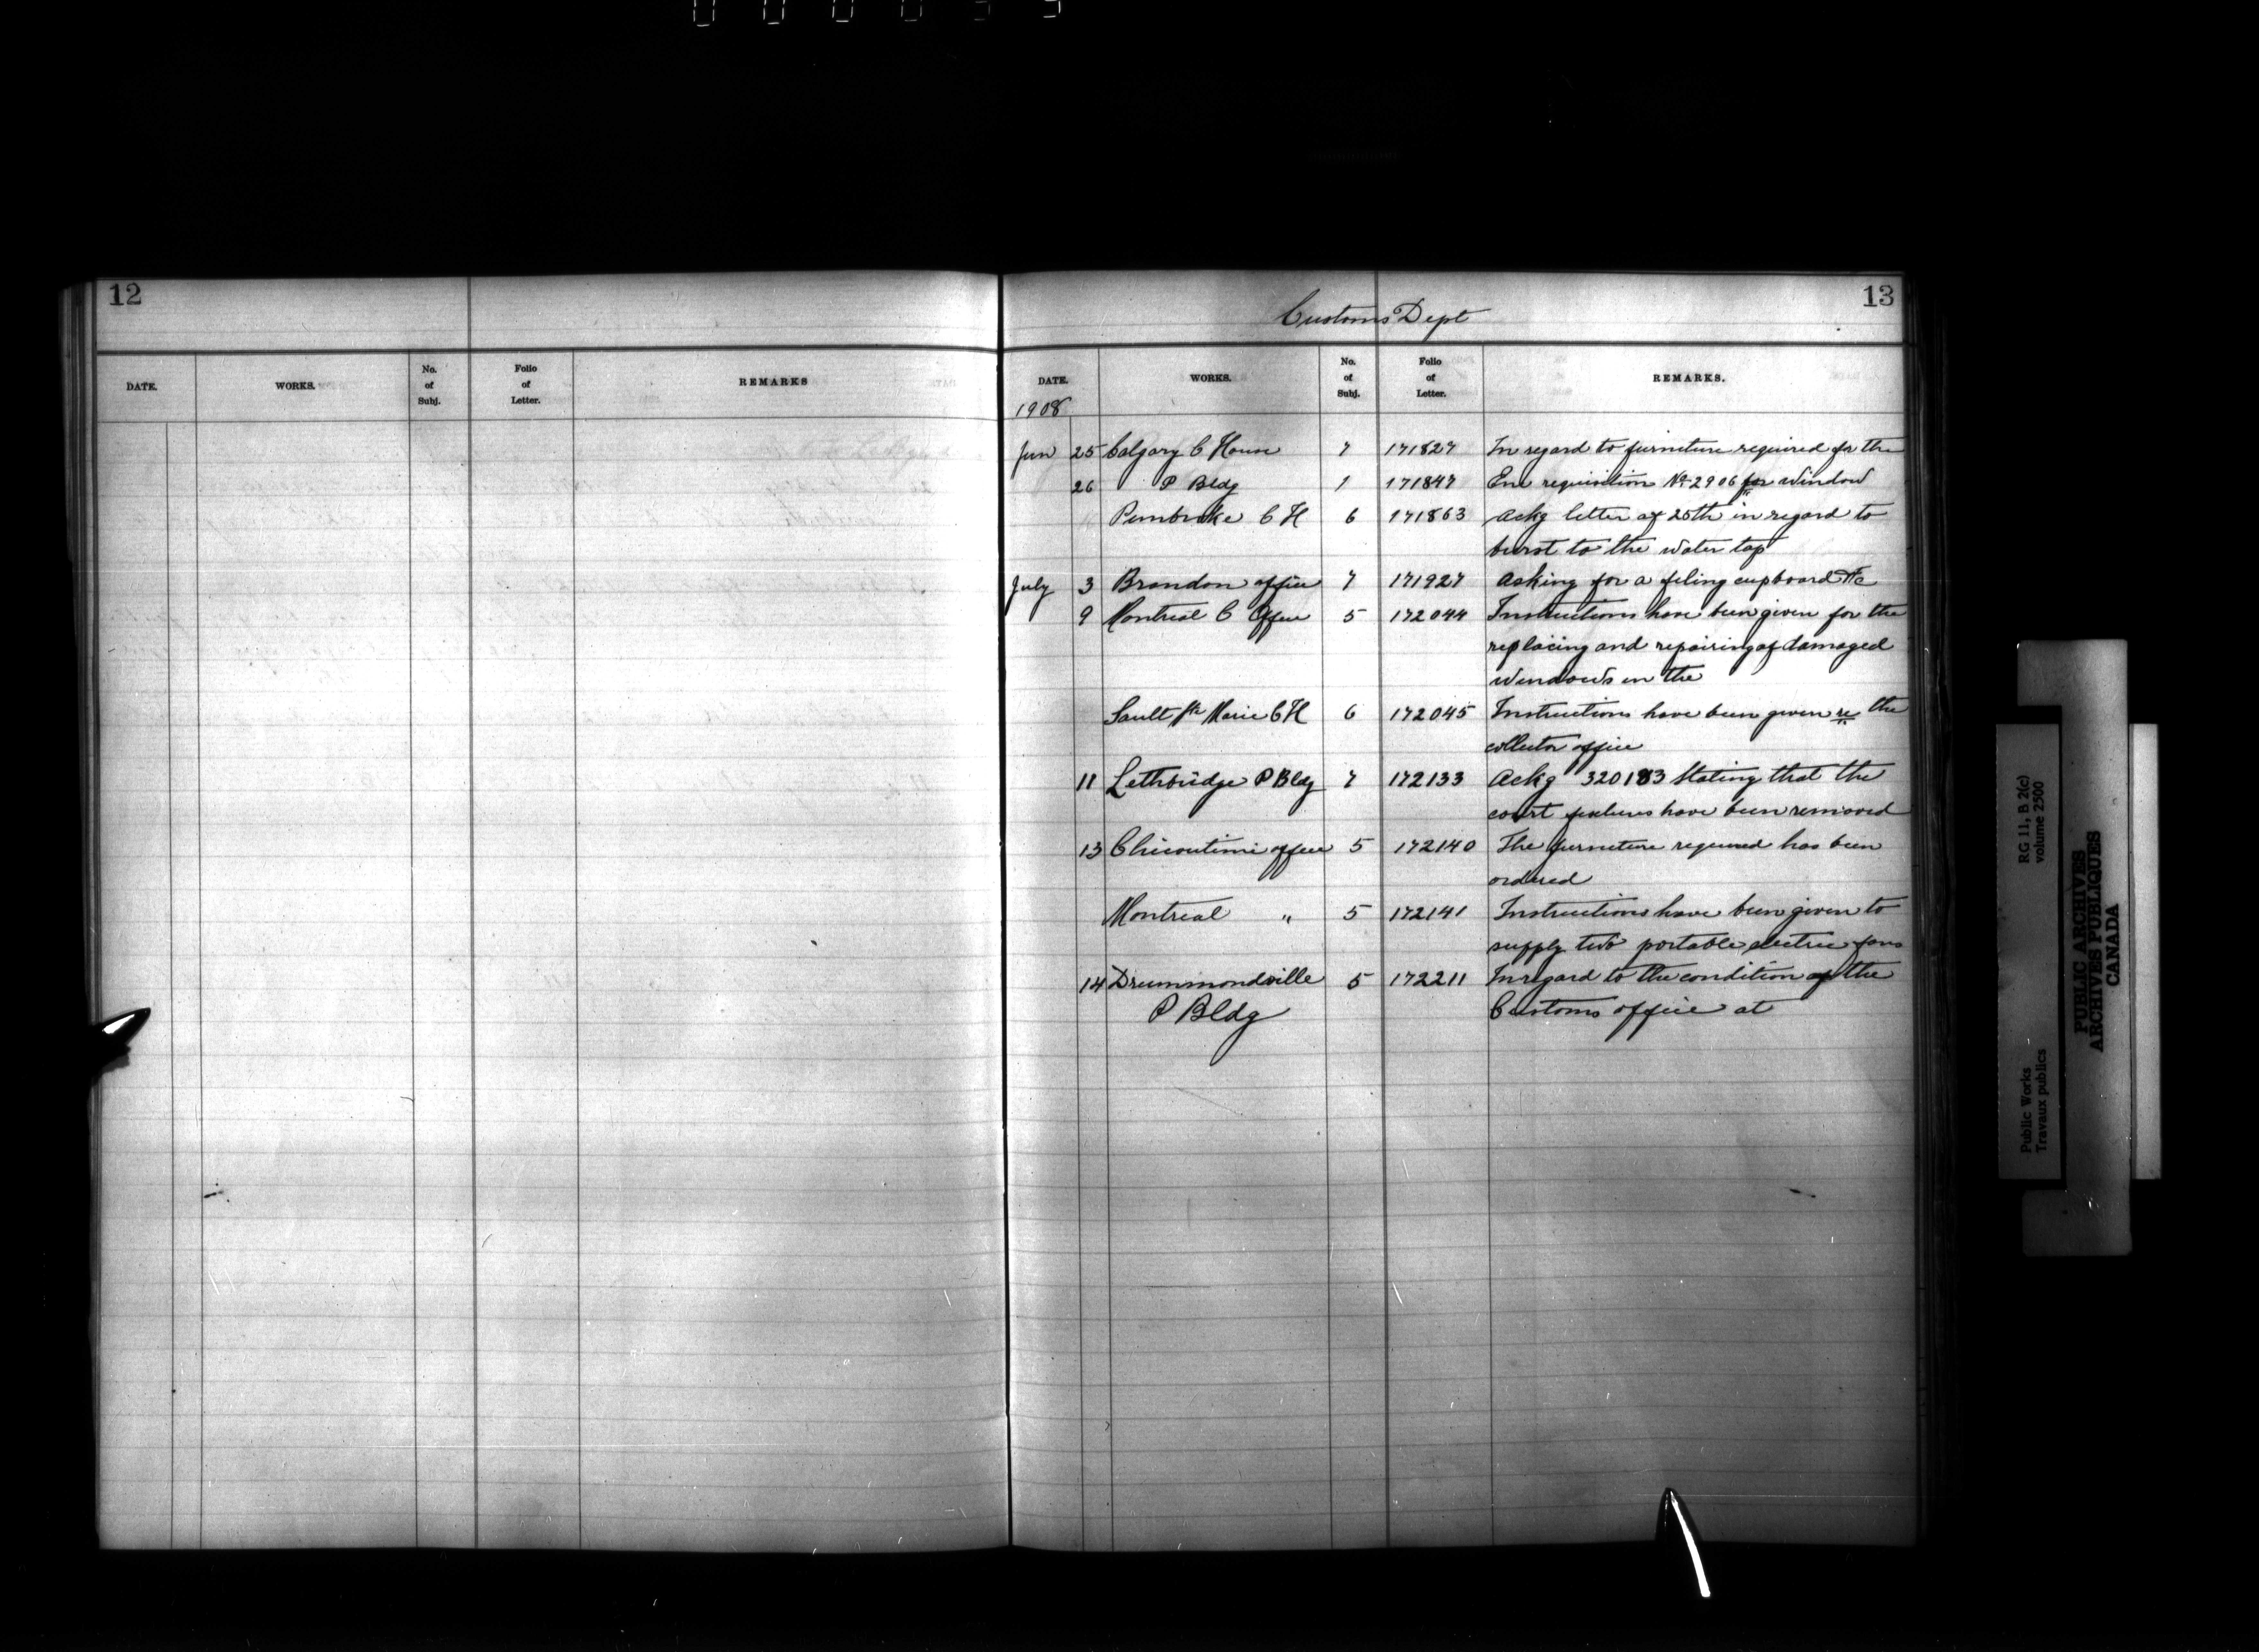 12
DATE. WORKS. No. of Subj. Folio of Letter. REMARKS
13
Customs Dept
DATE. WORKS. No. of Subj. Folio of Letter. REMARKS.
1908
Jun 25 Calgary C House 7 171827 In regard to furniture required for the
26 P Bldg 1 171847 Enc requisition No 2906 for window
Pembroke C H 6 171863 Ackg letter of 25th in regard to
burst to the water tap
July 3 Brandon office 7 171927 Asking for a filing cupboard &c
9 Montreal C Office 5 172044 Instructions have been given for the
replacing and repairing of damaged
windows in the
Sault Ste Marie C H 6 172045 Instructions have been given re the
collector office
11 Lethbridge P Bldg 7 172133 Ackg 320183 stating that the
court fixtures have been removed
13 Chicoutimi office 5 172140 The furniture required has been
ordered
Montreal " 5 172141 Instructions have been given to
supply two portable electric fans
14 Drummondville 5 172211 In regard to the condition of the
P Bldg Customs office at
Public Works
Travaux publics
RG 11, B 2(c)
volume 2500
PUBLIC ARCHIVES
ARCHIVES PUBLIQUES
CANADA